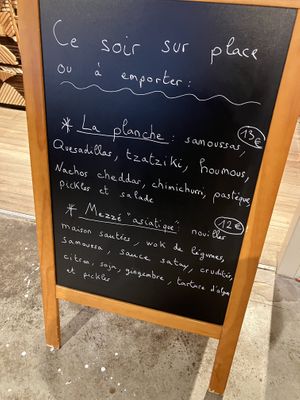 Ce soir sur place
ou à emporter :
* La planche : samoussas, 13€
Quesadillas, tzatziki, houmous,
Nachos cheddas, chimichurri, pastèque,
pickles et salade
* Mezzé "asiatique" : nouilles 12€
maison sautées, wok de légumes,
samoussa, sauce satay, crudités,
citron, soja, gingembre, tartare d'algues
et pickles